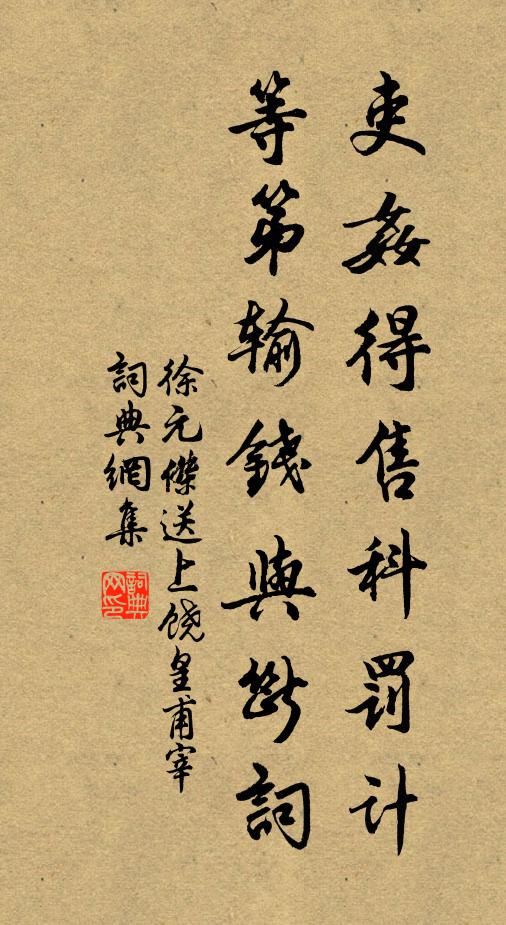 吏姦得售科罰計
等第輸錢與斷詞
徐元傑送上饒皇甫宰
詞典網集
詞典网印